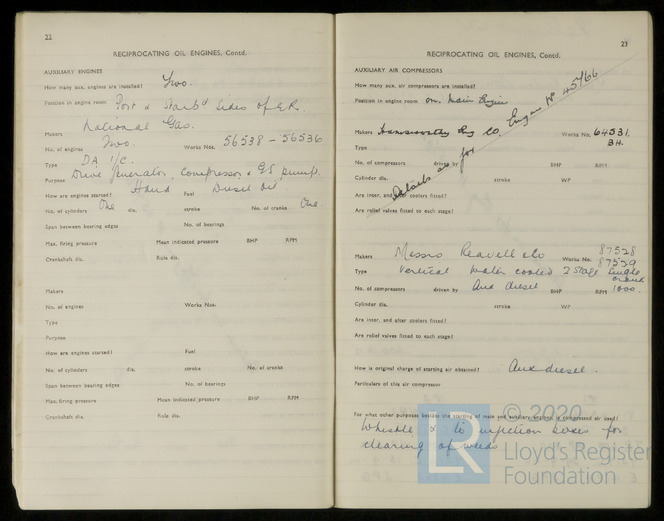 22
RECIPROCATING OIL ENGINES, Contd.
AUXILIARY ENGINES
How many aux. engines are installed? Two.
Position in engine room Port & Starbd Sides of E.R.
Makers National Gas.
No. of engines Two. Works Nos. 56538 - 56536
Type DA 1/C.
Purpose Drive generator, compressor & GS pump.
How are engines started? Hand Fuel Diesel Oil
No. of cylinders One dia. stroke No. of cranks One
Span between bearing edges No. of bearings
Max. firing pressure Mean indicated pressure BHP RPM
Crankshaft dia. Rule dia.
Makers
No. of engines Works Nos.
Type
Purpose
How are engines started? Fuel
No. of cylinders dia. stroke No. of cranks
Span between bearing edges No. of bearings
Max. firing pressure Mean indicated pressure BHP RPM
Crankshaft dia. Rule dia.
23
RECIPROCATING OIL ENGINES, Contd.
AUXILIARY AIR COMPRESSORS
How many aux. air compressors are installed?
Position in engine room on Main Engine
Makers Hamworthy Eng Co. Works No. 64531.
34.
Type
No. of compressors driven by BHP RPM
Cylinder dia. stroke WP
Are inter. and after coolers fitted?
Are relief valves fitted to each stage?
Details as for Engine No 45766
Makers Messrs Reavell & Co Works No. 87528
87529
Type Vertical water cooled 2 Stage single crank
No. of compressors driven by Aux diesel BHP RPM 1000.
Cylinder dia. stroke WP
Are inter. and after coolers fitted?
Are relief valves fitted to each stage?
How is original charge of starting air obtained? Aux diesel.
Particulars of this air compressor
For what other purposes besides the starting of main and auxiliary engines is compressed air used?
Whistle & to injection boxes for
clearing of weeds
© 2020
LR
Lloyd's Register
Foundation